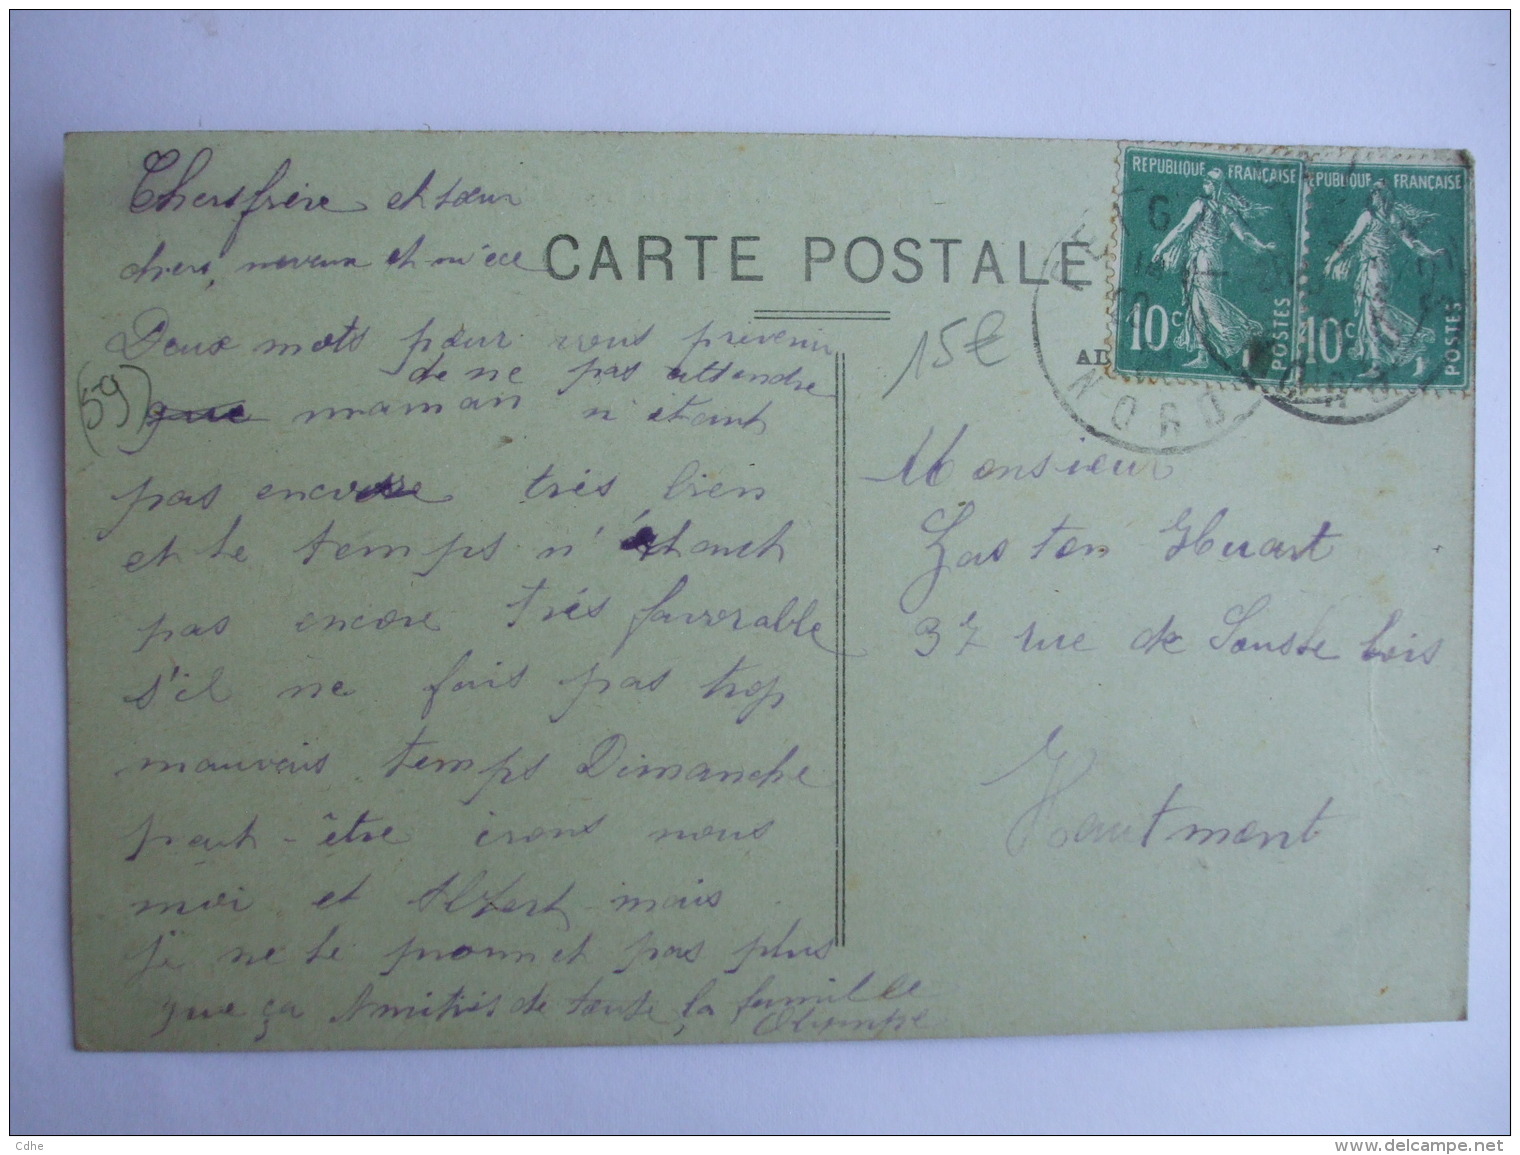 Chers frère et sœur
chers, neveux et nièce
Deux mots pour vous prévenir
de ne pas attendre
que maman n'étant
pas encore très bien
et le temps n'étant
pas encore très favorable
s'il ne fais pas trop
mauvais temps Dimanche
peut-être irons nous
moi et Albert mais
je ne te prommet pas plus
que ça Amitiés de toute la famille
Olympe
(59)
CARTE POSTALE
15€
REPUBLIQUE FRANÇAISE
10c
POSTES
EPUBLIQUE FRANÇAISE
10c
POSTES
NORD
Monsieur
Gaston Huart
37 rue de Sousle bois
Hautmont
Cdhe
www.delcampe.net